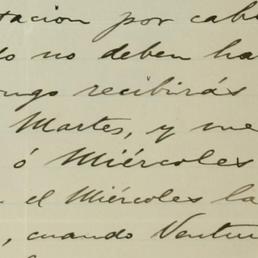 tacion por cab
do no deben ha
ngo recibirás
Martes, y me
ó Miércoles
el Miércoles la
, cuando Ventu